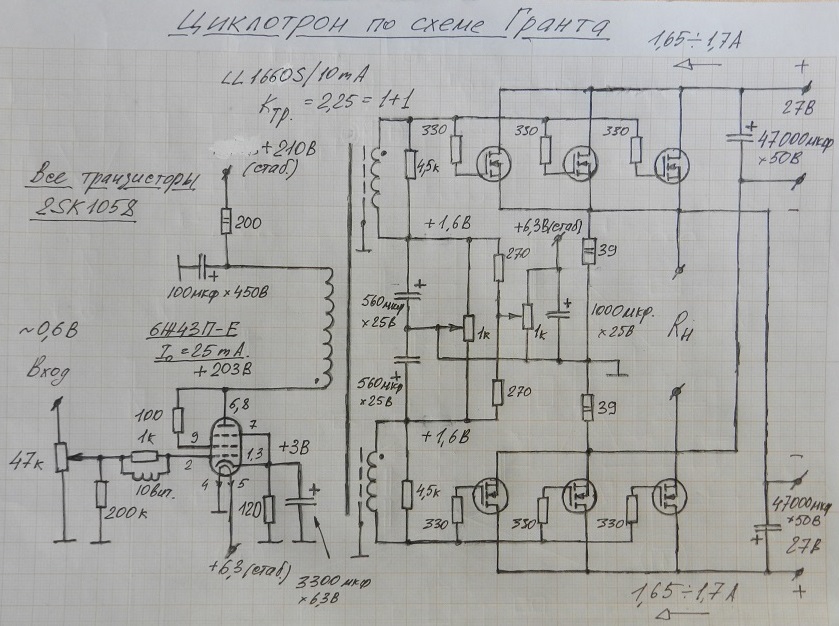 Циклотрон по схеме Гранта
1,65÷1,7А
LL1660S/10mA
Kтр. = 2,25 = 1+1
+210В
(стаб.)
Все транзисторы
2SK1058
200
100мкф×450В
6Ж43П-Е
Io = 25mA.
+203В
~0,6В
Вход
47к
200к
1к
10вит.
100
9
2
6,8
7
1,3
4
5
+3В
120
+6,3(стаб)
3300мкф
×6,3В
4,5к
330
330
330
+
27В
47000мкф
×50В
-
+1,6В
+6,3В(стаб)
270
39
560мкф
×25В
1к
1к
1000мкф.
×25В
Rн
560мкф
×25В
270
39
+1,6В
4,5к
330
330
330
-
47000мкф
×50В
27В
+
1,65÷1,7А